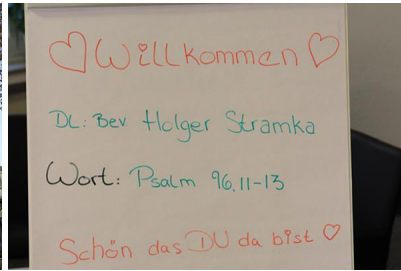 ♡Willkommen♡
DL: Bev Holger Stramka
Wort: Psalm 96,11-13
Schön das DU da bist ♡